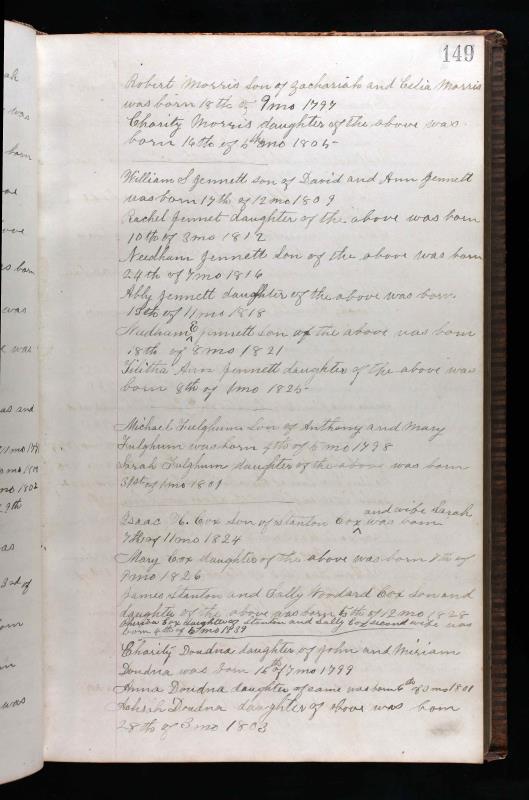 149
Robert Morris Son of Zachariah and Celia Morris
was born 18th of 9mo 1797
Charity Morris daughter of the above was
born 16th of mo 1805
William S Jennett Son of David and Ann Jennett
was born 17th of 12mo 1809
Rachel Jennet daughter of the above was born
10th of 3mo 1812
Needham Jennett Son of the above was born
24th of 7mo 1816
Abby Jennett daughter of the above was born
of 11mo 1818
Needham E Jennett Son of the above was born
18th of 8mo 1821
Ann Jennett daughter of the above was
born 8th of 1mo 1825
Michael Fulghum Son of Anthony and Mary
Fulghum was born 4th of 5mo 1798
Sarah Fulghum daughter of the above was born
31st of 1mo 1801
and wife Sarah
Isaac H. Cox Son of Stanton Cox ^ was born
7th of 11mo 1824
Mary Cox daughter of the above was born 7th of
9mo 1826
James Stanton and Sally Woodard Cox Son and
daughter of the above was born 6th of 12mo 1828
Cox daughter of Stanton and Sally Cox second wife was
born 4th of mo 1839
Charity Doudna daughter of John and Miriam
Doudna was born 16th of 7mo 1799
Anna Doudna daughter of same was born 6th of 3mo 1801
Doudna daughter of above was born
28th of 3mo 1803